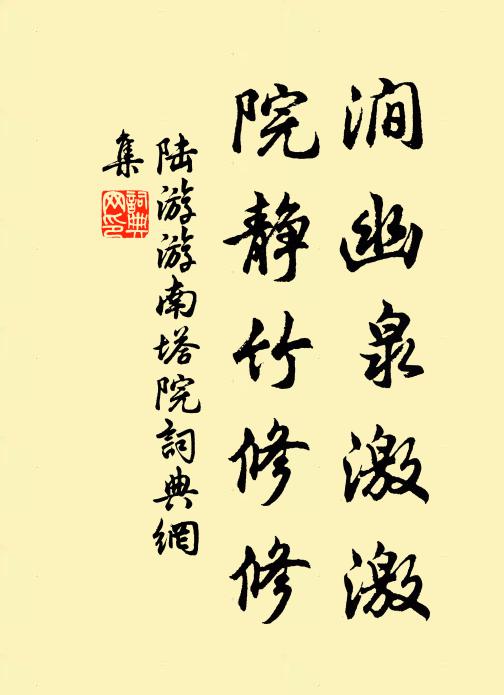 涧幽泉激激
院静竹修修
陆游游南塔院詞典網
集
詞典网印